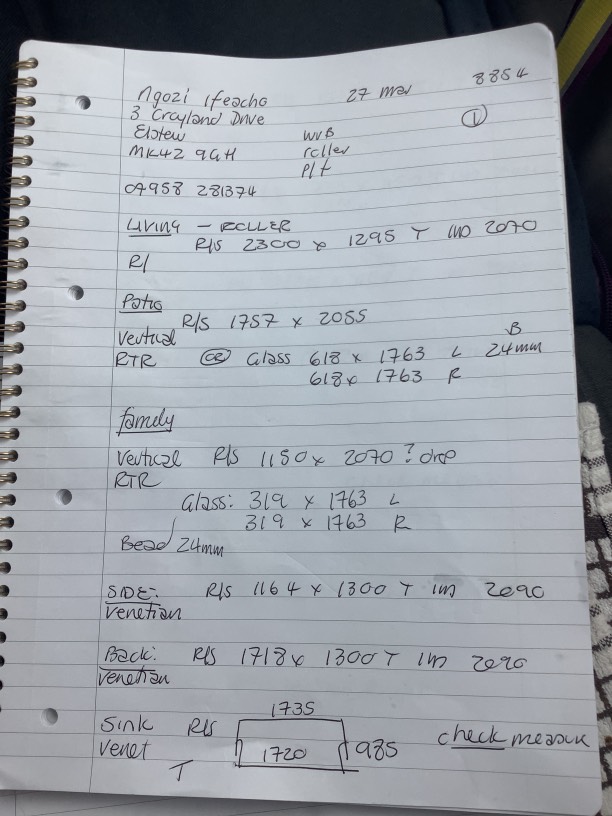 Ngozi Ifeacho 27 Mar 8854
3 Crayland Drive ①
Elstew WVB
MK42 9GH roller
P/t
07958 281374
LIVING - ROLLER
R/S 2300 x 1295 T IND 2070
R/
Patio
R/S 1757 x 2055
Vertical
RTR OR Glass 618 x 1763 L 24mm B
618 x 1763 R
family
Vertical R/S 1150 x 2070 ? drop
RTR
Glass: 319 x 1763 L
319 x 1763 R
Bead 24mm
SIDE: R/S 1164 x 1300 T IM 2090
Venetian
Back: R/S 1718 x 1300 T IM 2090
Venetian
1735
Sink R/S
Venet 1720 985 check measure
T